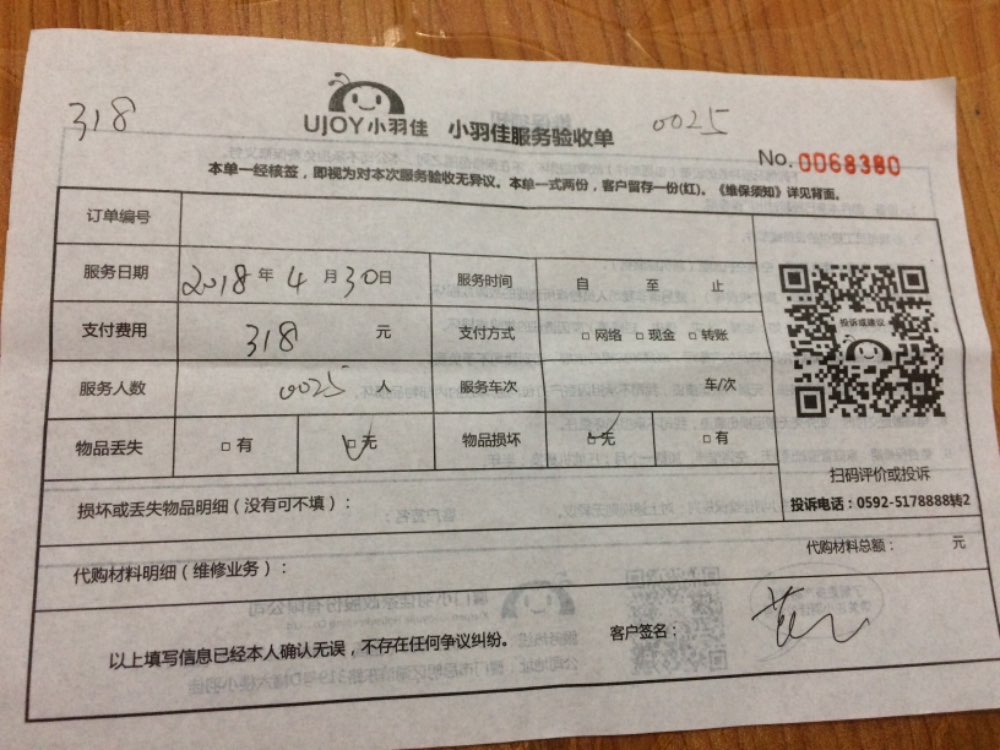 318
UJOY小羽佳 小羽佳服务验收单
0025
No. 0068380
本单一经核签，即视为对本次服务验收无异议。本单一式两份，客户留存一份(红)。《维保须知》详见背面。
订单编号
服务日期 2018 年 4 月 30 日 服务时间 自 至 止
支付费用 318 元 支付方式 □ 网络 □ 现金 □ 转账
服务人数 0025 人 服务车次 车/次
物品丢失 □ 有 □ 无 物品损坏 □ 无 □ 有
投诉或建议
扫码评价或投诉
投诉电话：0592-5178888转2
损坏或丢失物品明细（没有可不填）：
代购材料明细（维修业务）：
代购材料总额： 元
以上填写信息已经本人确认无误，不存在任何争议纠纷。
客户签名：